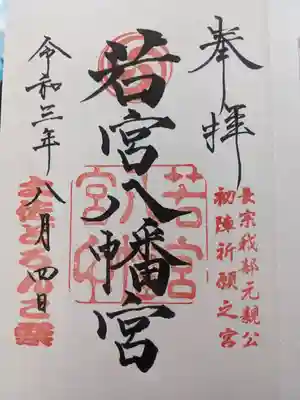 奉拝
長宗我部元親公
初陣祈願之宮
若宮八幡宮
若宮八幡宮印
令和三年八月四日